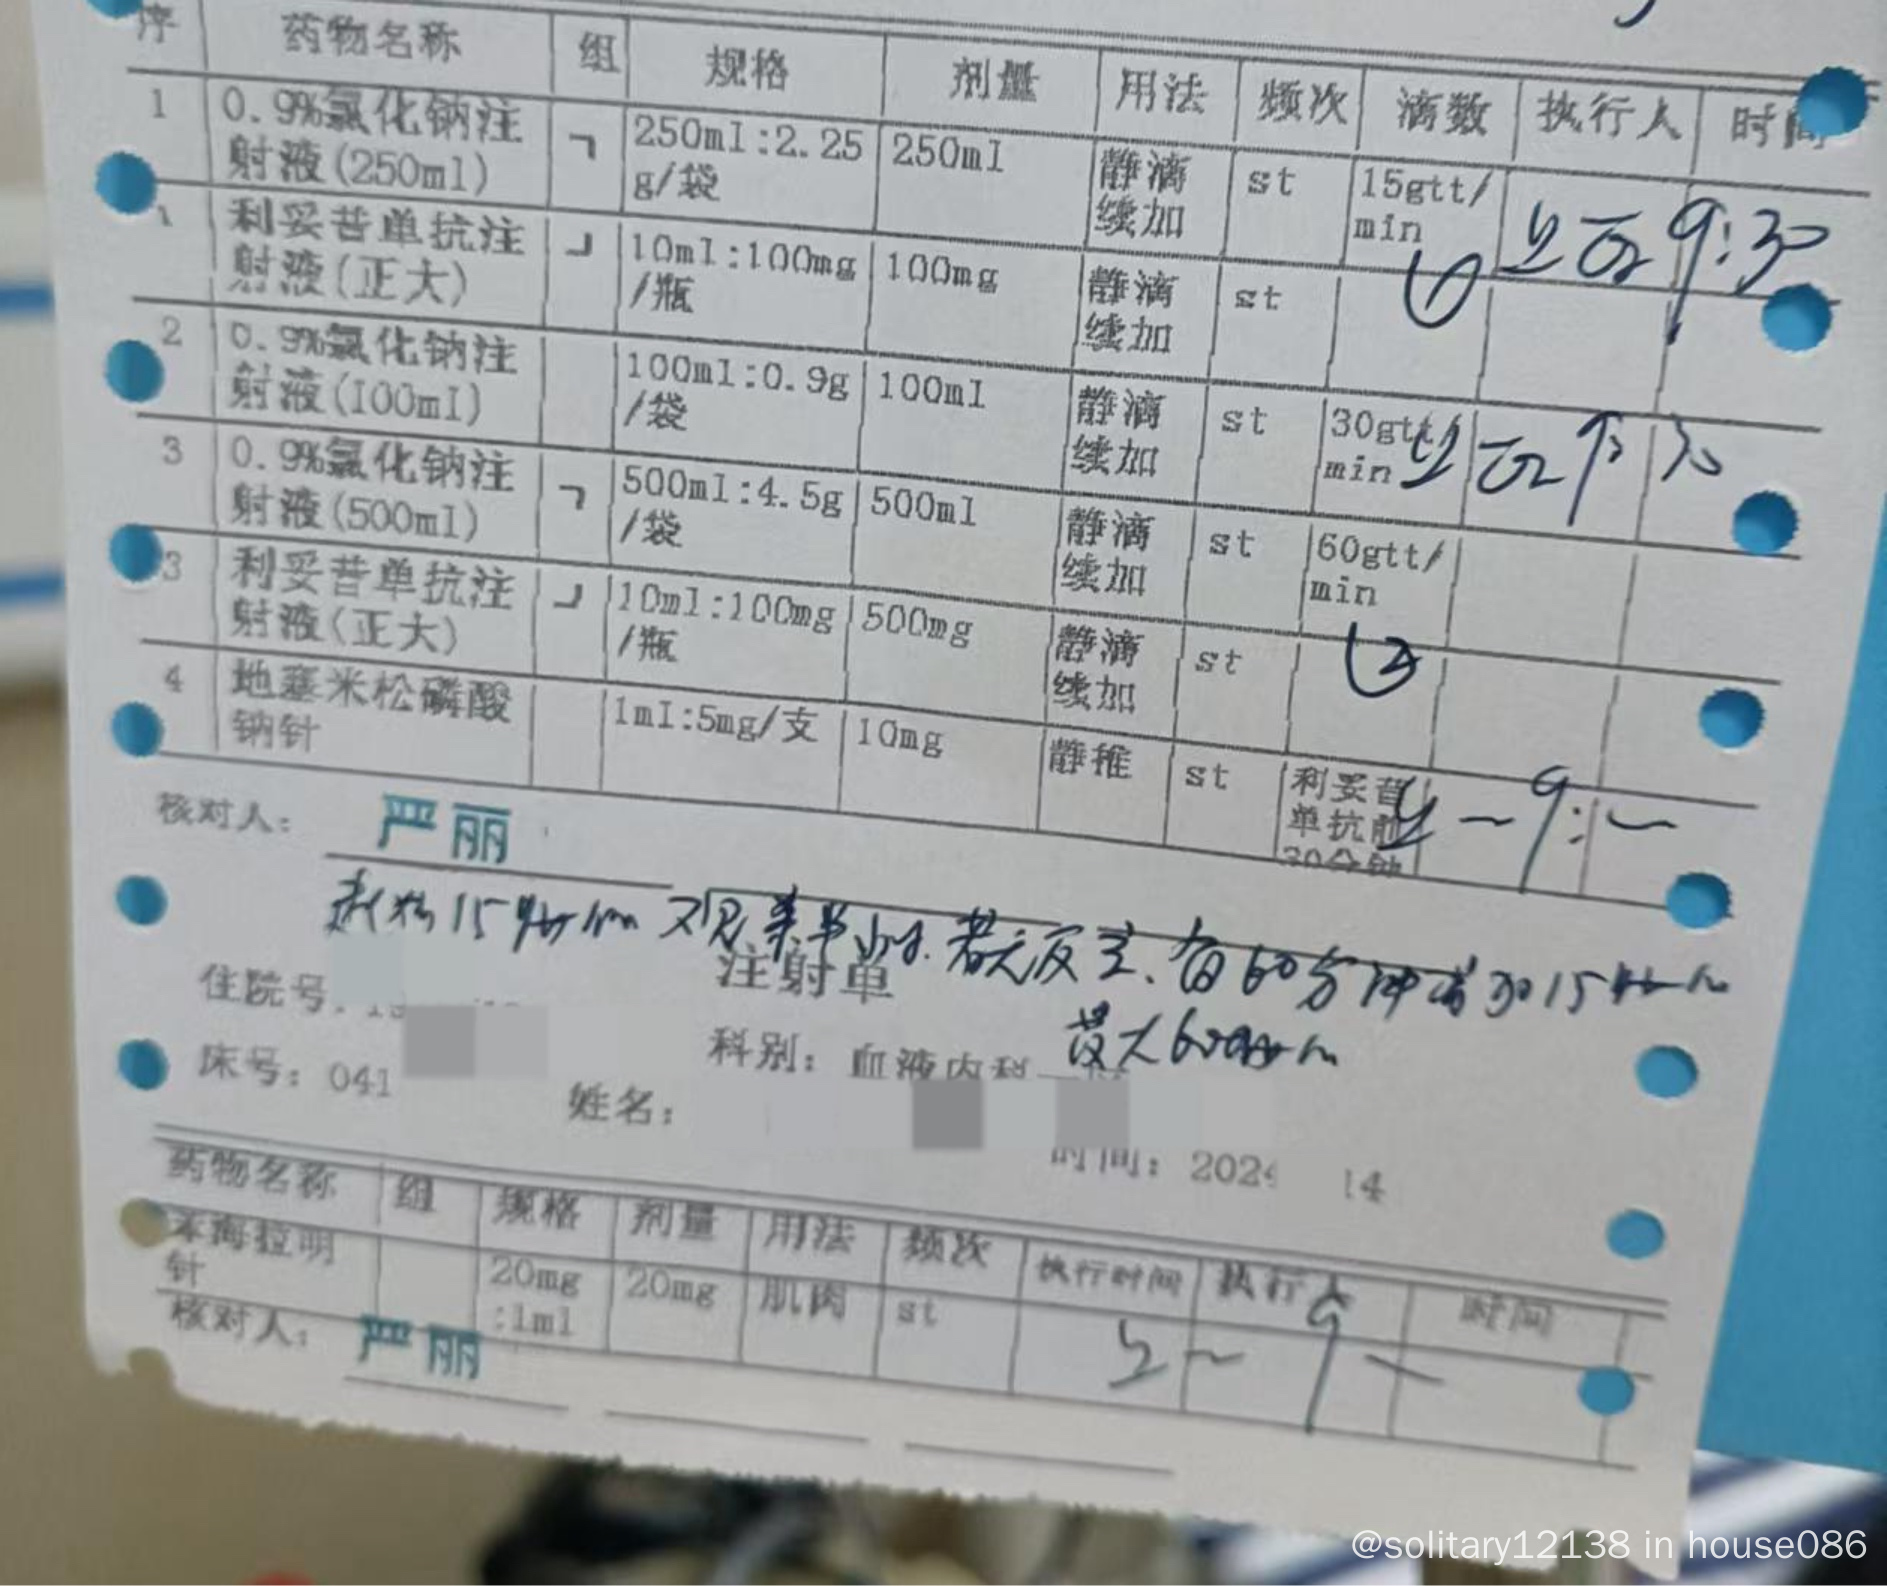 序 药物名称 组 规格 剂量 用法 频次 滴数 执行人 时间
1 0.9%氯化钠注射液(250ml) ㄱ 250ml:2.25g/袋 250ml 静滴续加 st 15gtt/min 9:30
1 利妥昔单抗注射液(正大) ┘ 10ml:100mg/瓶 100mg 静滴续加 st ①
2 0.9%氯化钠注射液(100ml) 100ml:0.9g/袋 100ml 静滴续加 st 30gtt/min 9:30
3 0.9%氯化钠注射液(500ml) ㄱ 500ml:4.5g/袋 500ml 静滴续加 st 60gtt/min
3 利妥昔单抗注射液(正大) ┘ 10ml:100mg/瓶 500mg 静滴续加 st ②
4 地塞米松磷酸钠针 1ml:5mg/支 10mg 静推 st 利妥昔单抗前30分钟 9:
核对人: 严丽
起始15gtt/min 观察半小时.若无反应.每60分钟增加15gtt/min
最大60gtt/min
注射单
住院号:
科别: 血液内科
床号: 041
姓名:
时间: 202 14
药物名称 组 规格 剂量 用法 频次 执行时间 执行人 时间
苯海拉明针 20mg:1ml 20mg 肌肉 st 9
核对人: 严丽
@solitary12138 in house086